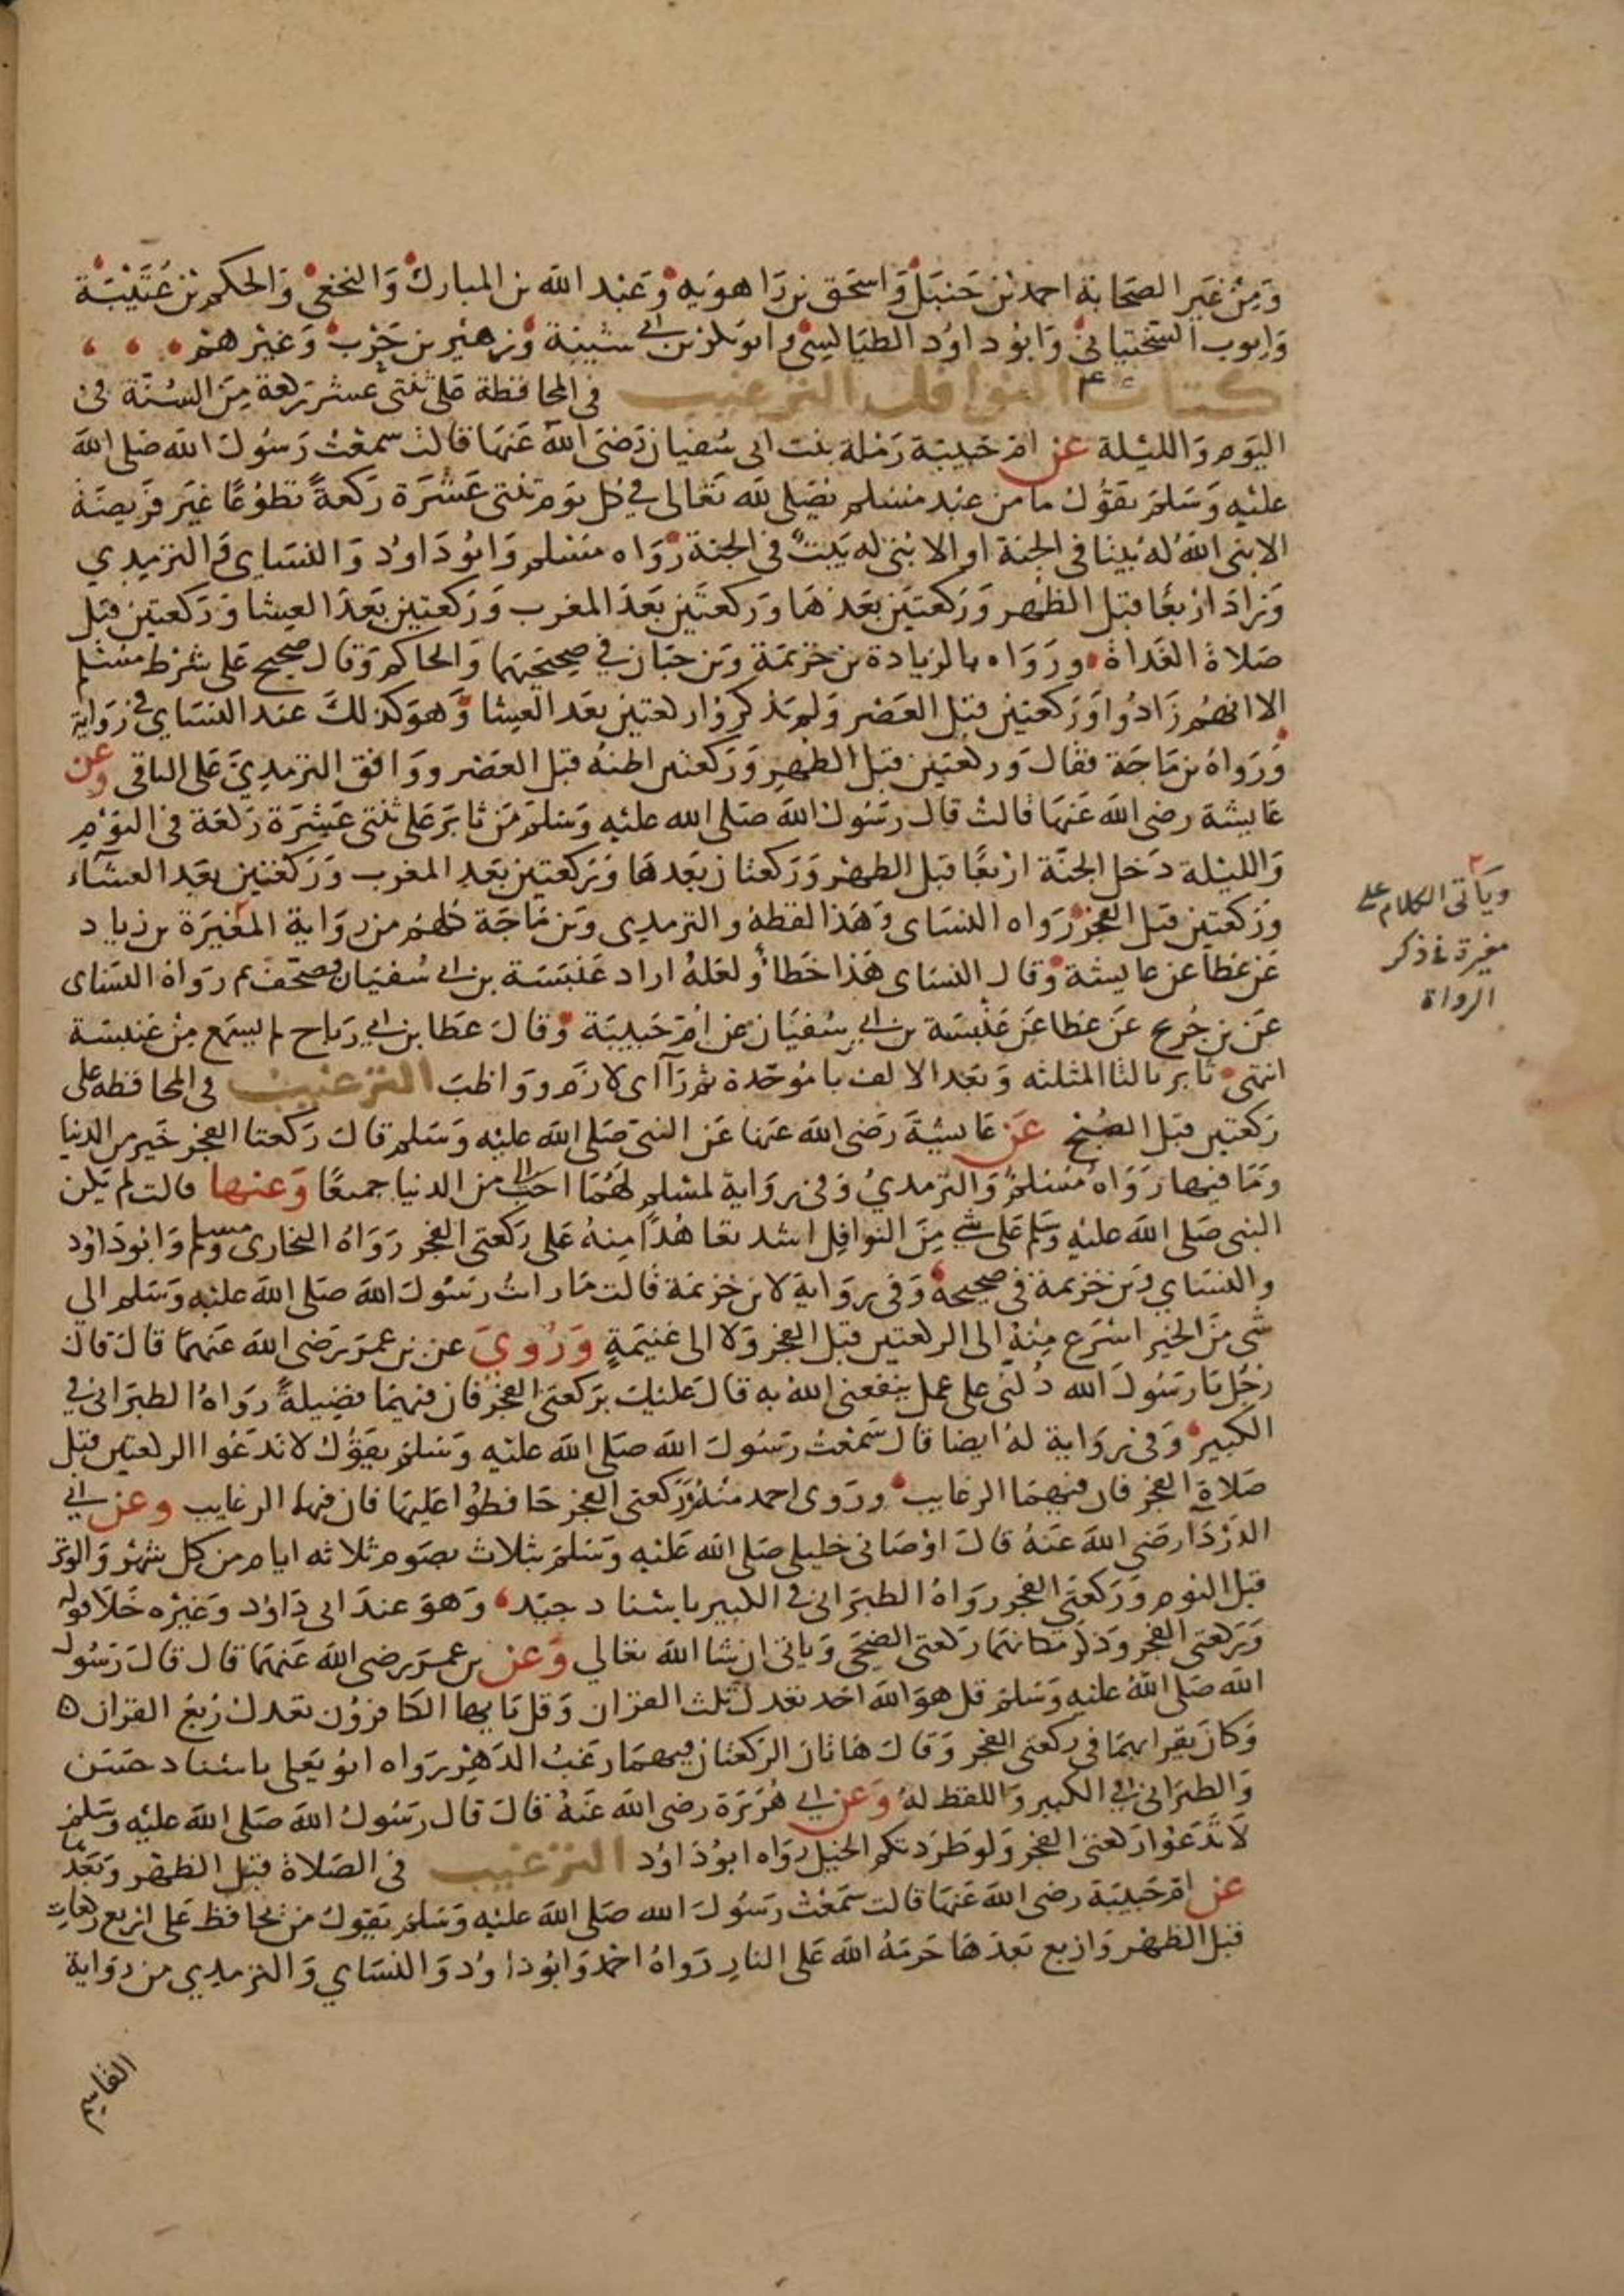 وَمِنْ غَيْرِ الصَحَابة احمد بن حَنبَل وَاسحَق بن رَاهويَه وَعَبْد الله بن المبارك وَالنخعي وَالحكم بن عُتَيْبَة
وَايوب السختياني وَابُو داوُد الطيَالسِي وابوبكر بن ابي شيبَة وَزهَير بن حَرْب وَغيْرهمْ
كتاب النوافل الترغيب في المحافظة على ثنتى عشر ركعة مِنَ السُنَّة فى
اليَوم وَالليْلة عن ام حَبيبَة رَمْلة بنت ابى سُفيان رَضىَ الله عَنهَا قالت سمعْت رَسُول الله صَلى الله
عليْه وَسَلمَ يقوُل ما من عبْد مسْلم يُصَلى لله تعَالى في كل يوَم ثنتى عَشْرَة ركعَةً تطوُعًا غيَر فرَيضَة
الابنى الله له بَيتًا فى الجنة او الابُنى له بَيتٌ فى الجنة رَوَاه مسْلم وَابُو دَاوُد وَالنسَاي وَالترمِدي
وَزادَ ارْبعًا قبْل الظهْر وَرَكعتيَن بعَدهَا وَرَكعتَين بَعدَ المغرب وَرَكعتين بَعدَ العِشا وَرَكعتين قبل
صَلاة الغَداة وروَاه بالزيادة بن خزيمَة وَبن حبَان في صحيحَيهما وَالحاكم وَقال صحيح عَلى شرْط مسْلم
الا انهُم زَادُوا وَرَكعتيَن قبل العَصْر وَلم يَذكرُوا ركعتين بَعد العِشا وَهوَ كذلكَ عند النسَاي في رَوَاية
وَرَوَاهُ بن مَاجَة فقالَ وَركعتيَن قبل الظهْرِ وَرَكعتين اظنهُ قبل العَصْر ووَافق الترمدِيَّ عَلى الباقى وعن
عَايشَة رضى الله عَنهَا قالتْ قال رسَوُل الله صَلى الله عليْه وَسَلمَ مَنْ ثابرَ عَلى ثنتى عَشْرَة رَكعَة فى اليَوْم
وَالليْلة دَخل الجنَّة ارْبعًا قبَل الظهْر وَرَكعتان بَعدهَا وَرَكعتين بَعد المغرب وَرَكعَتيْن بعَد العشَاء
وَرَكعتين قبَل الفجر رَواه النسَاى وَهَذا لفظهُ والترمدى وَبن مَاجَة كلهُم من روَاية المغيَرَة بن زياد
عَن عَطا عن عايشَة وَقال النسَاى هَذا خَطا وَلعَلهُ اراد عَنبَسَة بن ابى سُفيَان فصَحَف ثم رَوَاهُ النسَاى
عَن بن جُريج عَن عَطا عَن عَنْبسَة بن ابي سُفيَان عن امّ حَبيبَة وَقالَ عَطا بن ابي رَباح لم يسمَع مِنْ عَنبسَة
انتهى ثابر بالثا المثلثه وَبَعَد الالف با مُوحّدة ثم رَآ اى لازَم ووَاظبَ الترغيب فى المحافظه على
رَكعتين قبَل الصُبْح عَن عَايشَةَ رَضى الله عَنها عَن النبى صَلى الله عليْه وَسَلم قالَ رَكعتا الفجر خَير من الدنيا
وَمَا فيهَا رَوَاهُ مُسْلمٌ وَالترمدىُ وَفى روَاية لمسْلم لهُمَا احَبُّ الي من الدنيا جميعًا وَعنها قالت لم يكن
النبى صَلى الله عليْه وَسَلم عَلى شي مِنَ النوَافِل اشد تعَاهُدًا مِنهُ عَلى رَكعتي الفجر رَوَاهُ البخارى وَمسلم وَابُو دَاوُد
والنسَاي وَبن خزيمَة في صحيحهُ وَفى روَاية لابن خزيمَة قالت مَا رايتُ رسَوُلَ الله صَلى الله عليْه وَسَلم الى
شىء مِنَ الخير اسْرَع مِنهُ الى الركعتين قبَل الفجر وَلا الى غنيمَةٍ وَرُوِيَ عن بن عمَر رَضى الله عَنهمَا قال قال
رَجُل يَا رسَوُلَ الله دُلنى على عمل ينفعنى اللهُ به قالَ عَليْك برَكعتى الفجر فان فيهمَا فضيلةً رَوَاهُ الطبرَانى في
الكبير وَفى روَاية لهُ ايضا قال سَمْعتُ رسَوُلَ الله صَلى الله عليْه وَسَلمَ يقوُل لا تدَعُوا الركعتين قبَل
صَلاة الفجر فان فيهما الرغايب وروَى احمد منهُ وَرَكعتى الفجر حَافظوُا عَليهَا فان فيها الرغايب وعن ابي
الدَرْدَا رَضى الله عَنهُ قالَ اوْصَانى خليلى صَلى الله عَليْه وَسَلمَ بثلاث بصَوم ثلاثه ايام من كل شهْر وَالوتر
قبَل النوم وَرَكعتَى الفجر رَوَاهُ الطبرَانى فى الكبير باسْناد جيّد وَهوَ عندَ ابى دَاوُد وَغيْره خَلا قوله
وَرَكعتى الفجر وَذكر مَكانهمَا رَكعتى الضحَى وَياتى ان شا الله تعَالي وَعن بن عمَر رضى الله عَنهمَا قال قالَ رَسُول
الله صَلى اللهُ عليْه وَسَلمَ قل هوَ الله احَد تعَدل ثلث القرْان وَقل يَا ايها الكافرُون تعَدل رُبعَ القران
وَكانَ يَقرَابهمَا فى ركعتى الفجر وَقالَ هَاتانَ الرَكعَتان فيهمَا رغبُ الدَهْر رَوَاه ابُو يَعلى باسْناد حسَن
وَالطبرَانى في الكبير وَاللفظ لهُ وَعن ابي هُرَيْرَة رضى الله عَنهُ قالَ قال رَسُولُ الله صَلى الله عليْه وَسَلمَ
لاَ تدَعوُا رَكعتى الفجر وَلو طرَدتكم الخيَل رَوَاه ابوُ دَاوُد الترغيب فى الصَلاة قبَل الظهْر وَبَعدهَا
عن امّ حَبيبَة رضى الله عَنهَا قالت سَمعْتُ رسَوُلَ الله صَلى الله عليْه وَسَلمَ يقوُل من يحافظ عَلى اربع ركعات
قبَل الظهْر وَاربع بَعدهَا حَرمَهُ الله عَلى النار رَوَاهُ احمد وَابُو دَاوُد وَالنسَاي وَالترمدِي من روَاية
القاسم
وياتى الكلام على
مغيرة في ذكر
الرواة